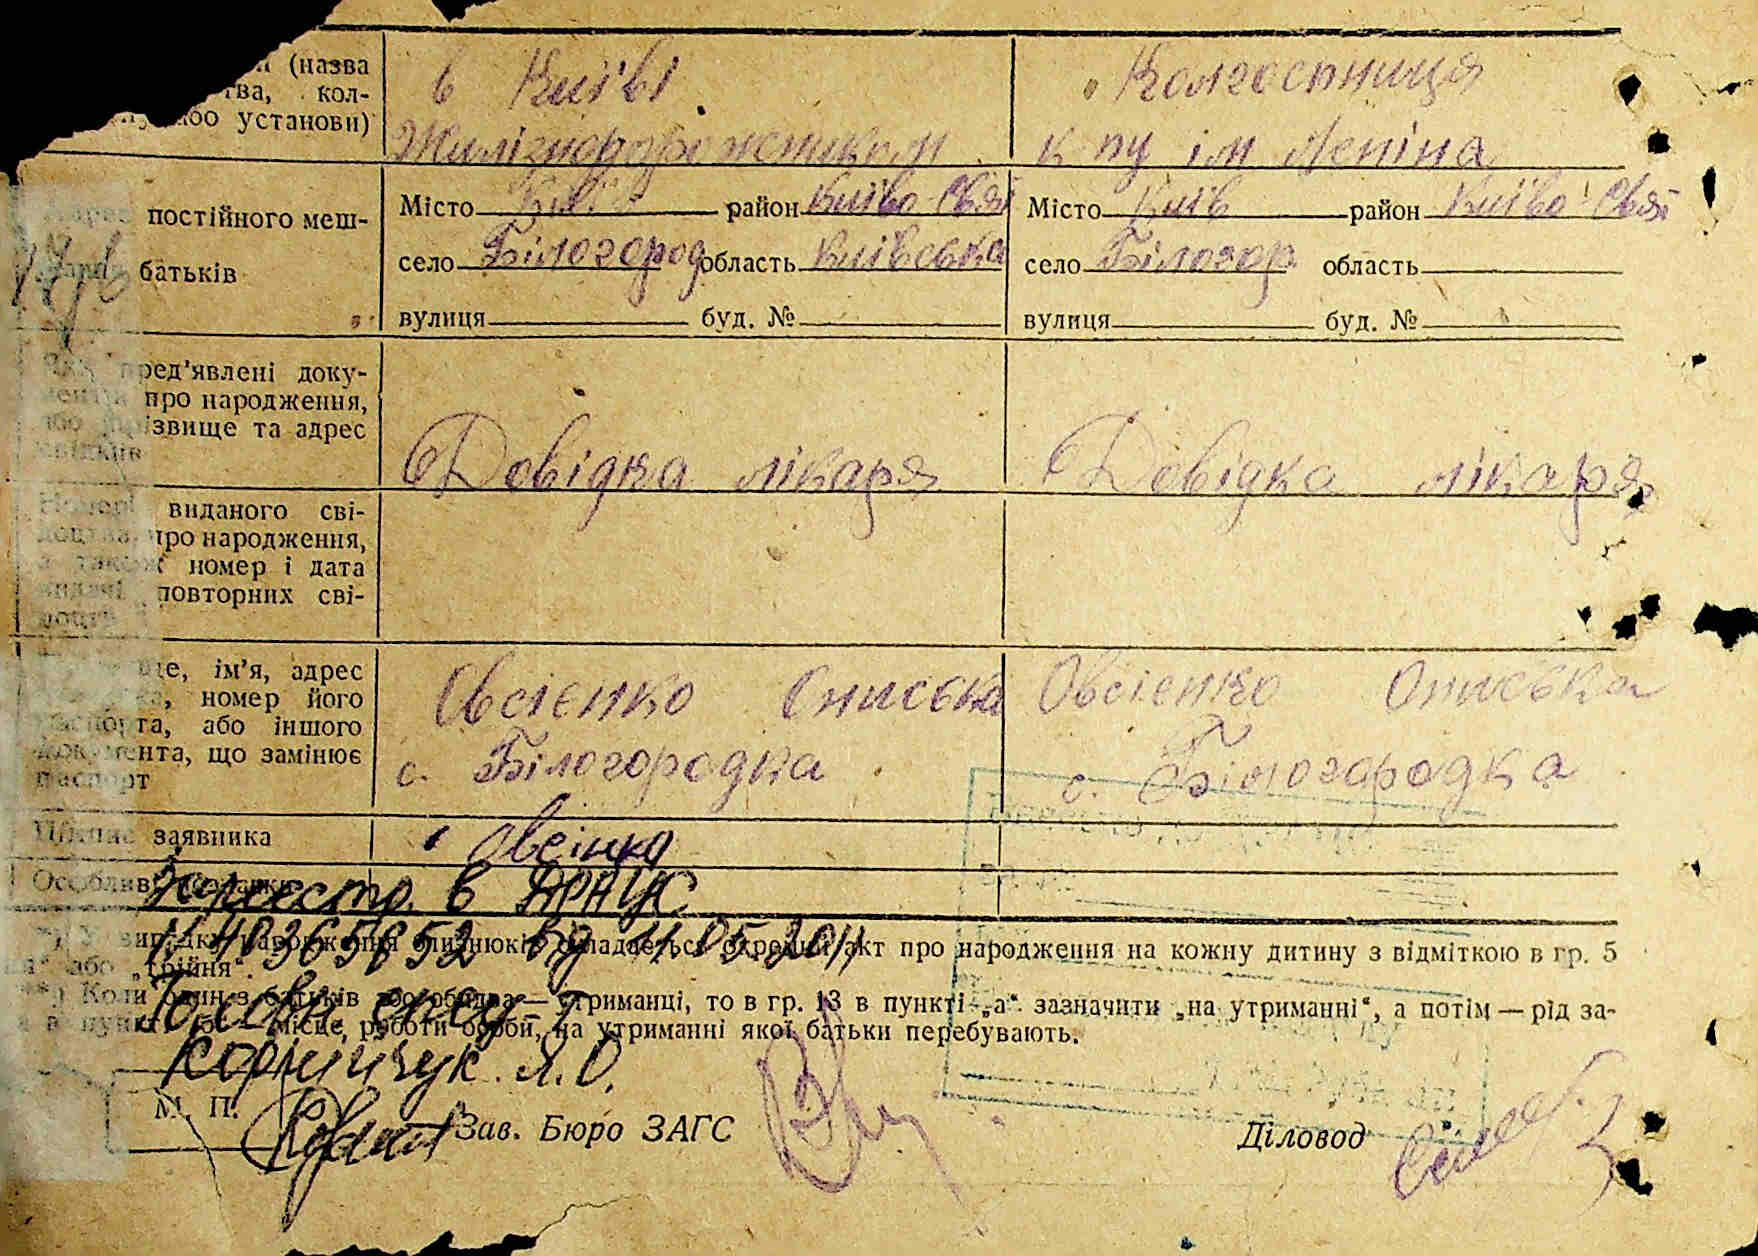 (назва
кол-
або установи)
в Київі
Жилізнодорожником
Колгоспниця
к пу ім Леніна
постійного меш-
батьків
Місто Київ район Київо-Свят
село Білогород область Київська
вулиця буд. №
Місто Київ район Київо-Свят
село Білогор область
вулиця буд. №
Які пред'явлені доку-
менти про народження,
або прізвище та адрес
свідків
Довідка лікаря
Довідка лікаря
Номер виданого сві-
доцтва про народження,
а також номер і дата
видачі повторних сві-
доцтв
ім'я, адрес
номер його
паспорта, або іншого
документа, що замінює
паспорт
Овсієнко Ониська
с. Білогородка
Овсієнко Ониська
с. Білогородка
Підпис заявника
Овсінко
Особливі
Зареєстр. в ДРАЦС
40365652 від 11.05.2011
випадку народження близнюків складається окремий акт про народження на кожну дитину з відміткою в гр. 5
або „трійня“.
Коли один з батьків або обидва — утриманці, то в гр. 13 в пункті „а“ зазначити „на утриманні“, а потім — рід за-
в пункті місце роботи особи, на утриманні якої батьки перебувають.
Головн спец
Корнійчук Л.О.
М. П.
Зав. Бюро ЗАГС
Діловод